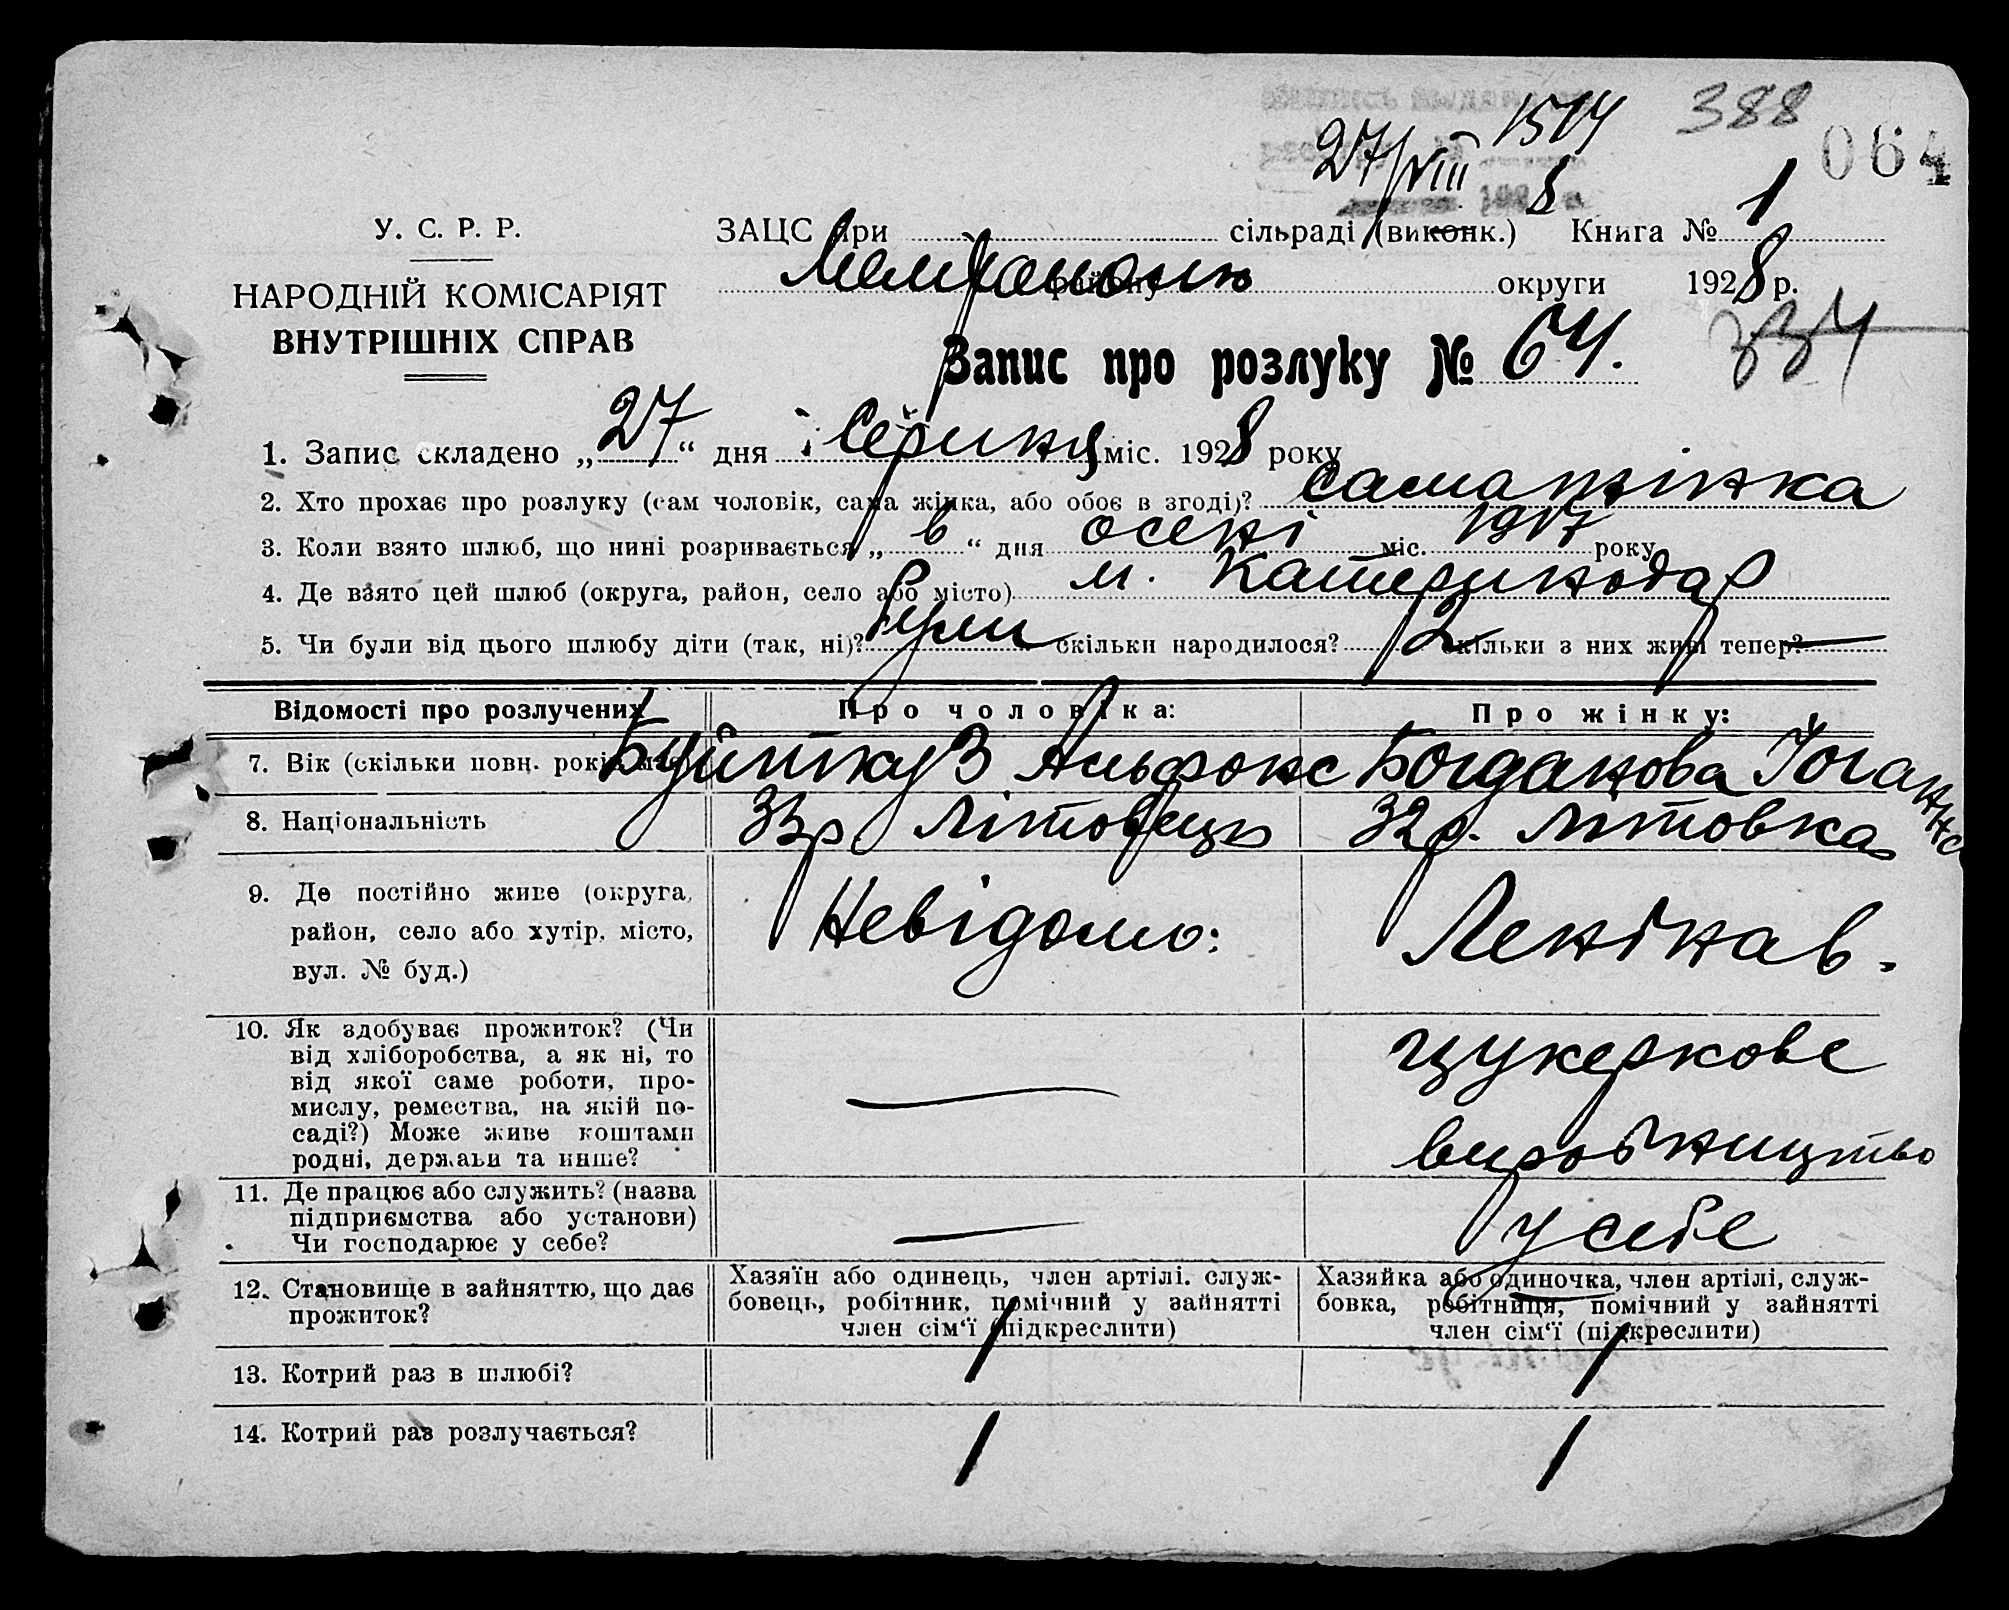 388
1514
27/VIII 8
064
У. С. Р. Р.
НАРОДНІЙ КОМІСАРІЯТ
ВНУТРІШНІХ СПРАВ
ЗАЦС при сільраді (виконк.) Книга № 1
району округи 1928 р.
Запис про розлуку № 64.
334
1. Запис складено „27“ дня Серпня міс. 1928 року
2. Хто прохає про розлуку (сам чоловік, сама жінка, або обоє в згоді)? сама жінка
3. Коли взято шлюб, що нині розривається „в“ дня осені міс. 1917 року
4. Де взято цей шлюб (округа, район, село або місто) м. Катеринодар
5. Чи були від цього шлюбу діти (так, ні)? були скільки народилося? 2 скільки з них живі тепер? —
Відомості про розлучених Про чоловіка: Про жінку:
7. Вік (скільки повн. років має) Альфонс Богданова
8. Національність 33 р Літовець 32 р. Літовка
9. Де постійно живе (округа, район, село або хутір, місто, вул. № буд.) Невідомо:
10. Як здобуває прожиток? (Чи
від хліборобства, а як ні, то
від якої саме роботи, про-
мислу, ремества, на якій по-
саді?) Може живе коштами
родні, держави та инше?
— цукеркове
виробництво
11. Де працює або служить? (назва
підприємства або установи)
Чи господарює у себе?
— у себе
12. Становище в зайняттю, що дає
прожиток?
Хазяїн або одинець, член артілі, служ-
бовець, робітник, помічний у зайнятті
член сім'ї (підкреслити)
Хазяйка або одиночка, член артілі, служ-
бовка, робітниця, помічний у зайнятті
член сім'ї (підкреслити)
13. Котрий раз в шлюбі? 1 1
14. Котрий раз розлучається? 1 1